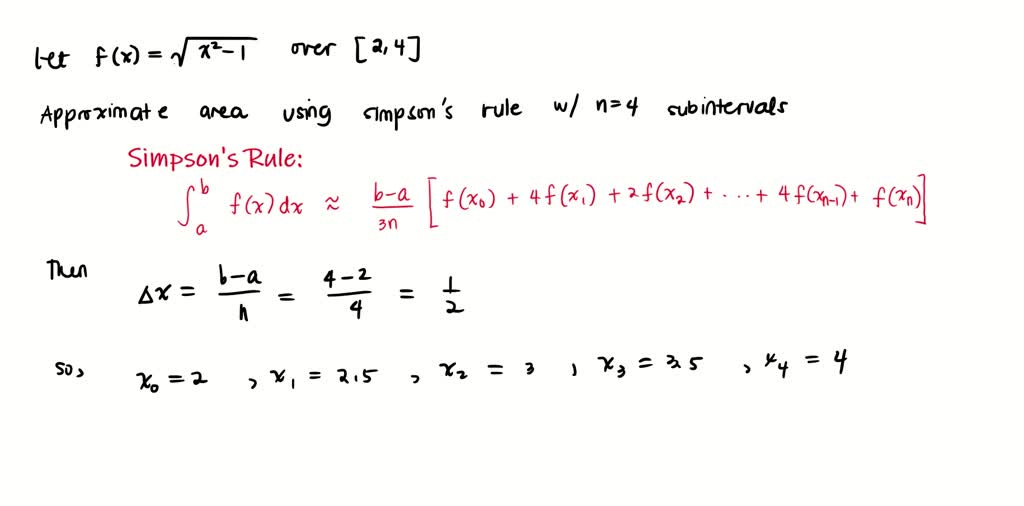 Let f(x) = √(x²-1) over [2,4]
Approximate area using simpson's rule w/ n=4 subintervals
Simpson's Rule:
∫ₐᵇ f(x)dx ≈ (b-a)/(3n) [f(x₀) + 4f(x₁) + 2f(x₂) + ... + 4f(xₙ₋₁) + f(xₙ)]
Then
Δx = (b-a)/n = (4-2)/4 = 1/2
so, x₀ = 2 , x₁ = 2.5 , x₂ = 3 , x₃ = 3.5 , x₄ = 4